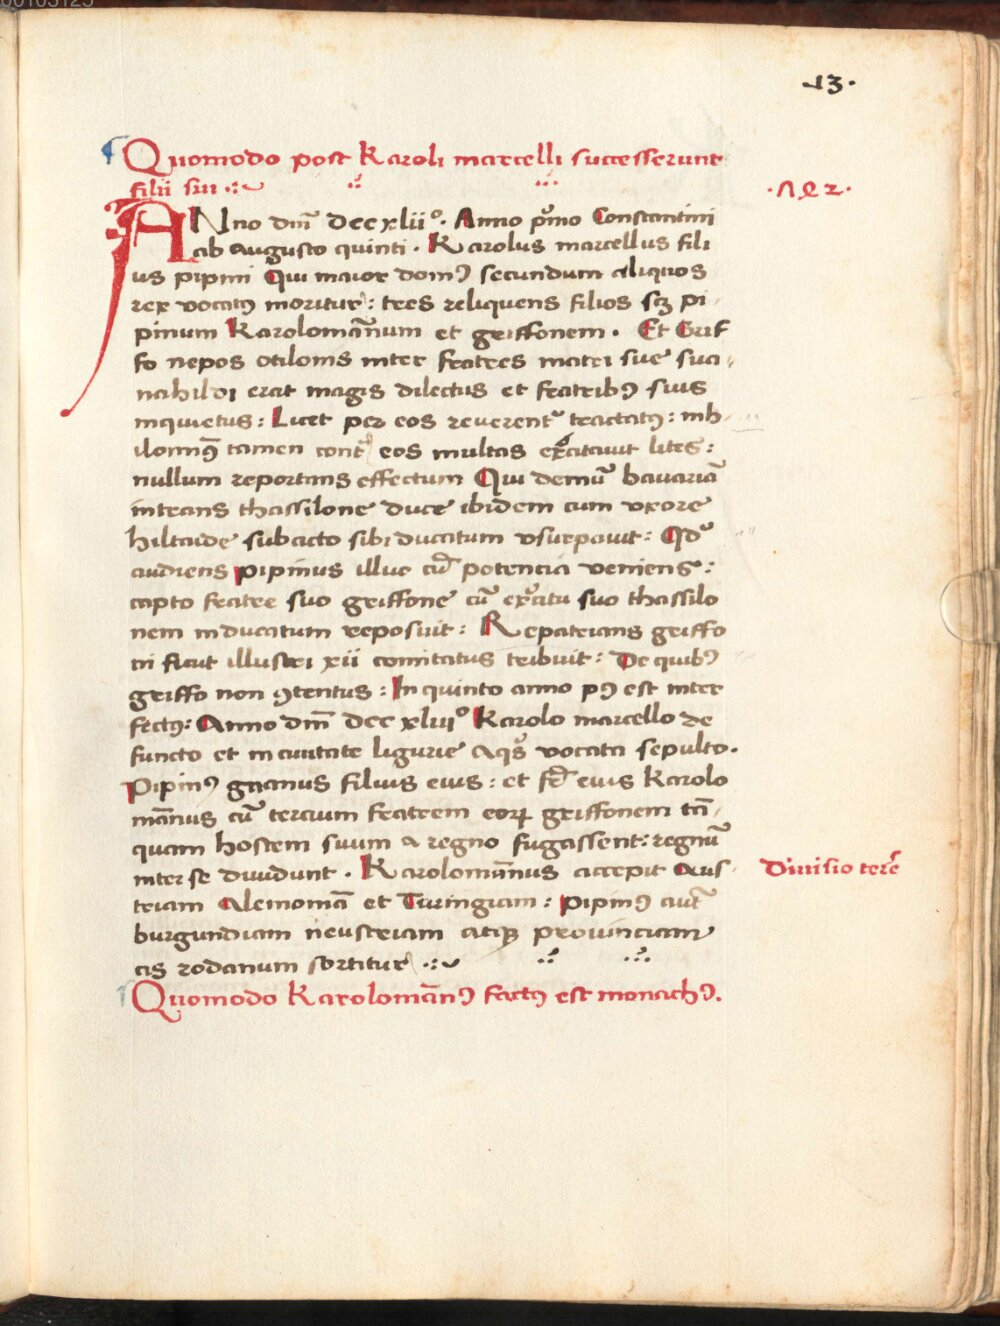 .13.
Quomodo post Karoli marcelli successerunt
filii sui
Anno dm̄ dccxliiº. Anno pͥmo Constantini
ab augusto quinti. Karolus marcellus fili
us pipini Qui maior domꝰ secundum aliquos
rex vocatꝰ moritur: tres reliquens filios scꝫ pi
pinum Karolomānum et griffonem. Et Grif
fo nepos otilonis inter fratres matri sue sua
nahildi erat magis dilectus et fratribꝰ suis
inquietus: Licet per eos reverentͬ tractatꝰ: nih
ilominꝰ tamen contͣ eos multas excitavit lites:
nullum reportans effectum Qui demū bavariā
intrans thassilone duce ibidem cum vxore
hiltrude subacto sibi ducatum vsurpavit: Qdͦ
audiens pipinus illuc cū potencia veniens:
capto fratre suo griffone cū exͬcitu suo thassilo
nem in ducatum reposuit: Repatrians griffo
ni sicut illustri xii comitatus tribuit: De quibꝰ
griffo non ꝯtentus: In quinto anno pꝰ est inter
fectꝰ: Anno dm̄ dccxliiiº Karolo marcello de
functo et in civitate ligurie aqͥs vocata sepulto.
Pipinꝰ gnanus filius eius: et fr̄ eius Karolo
mānus cū tercium fratrem eoꝝ griffonem tā
quam hostem suum a regno fugassent: regnū
inter se dividunt. Karolomānus accepit Aus
triam Alemoniā et Turingiam: Pipinꝰ autē
burgundiam neustriam atqꝫ provinciam
cis rodanum sortitur
Quomodo Karolomānꝰ factꝰ est monachꝰ.
.742.
Divisio terre